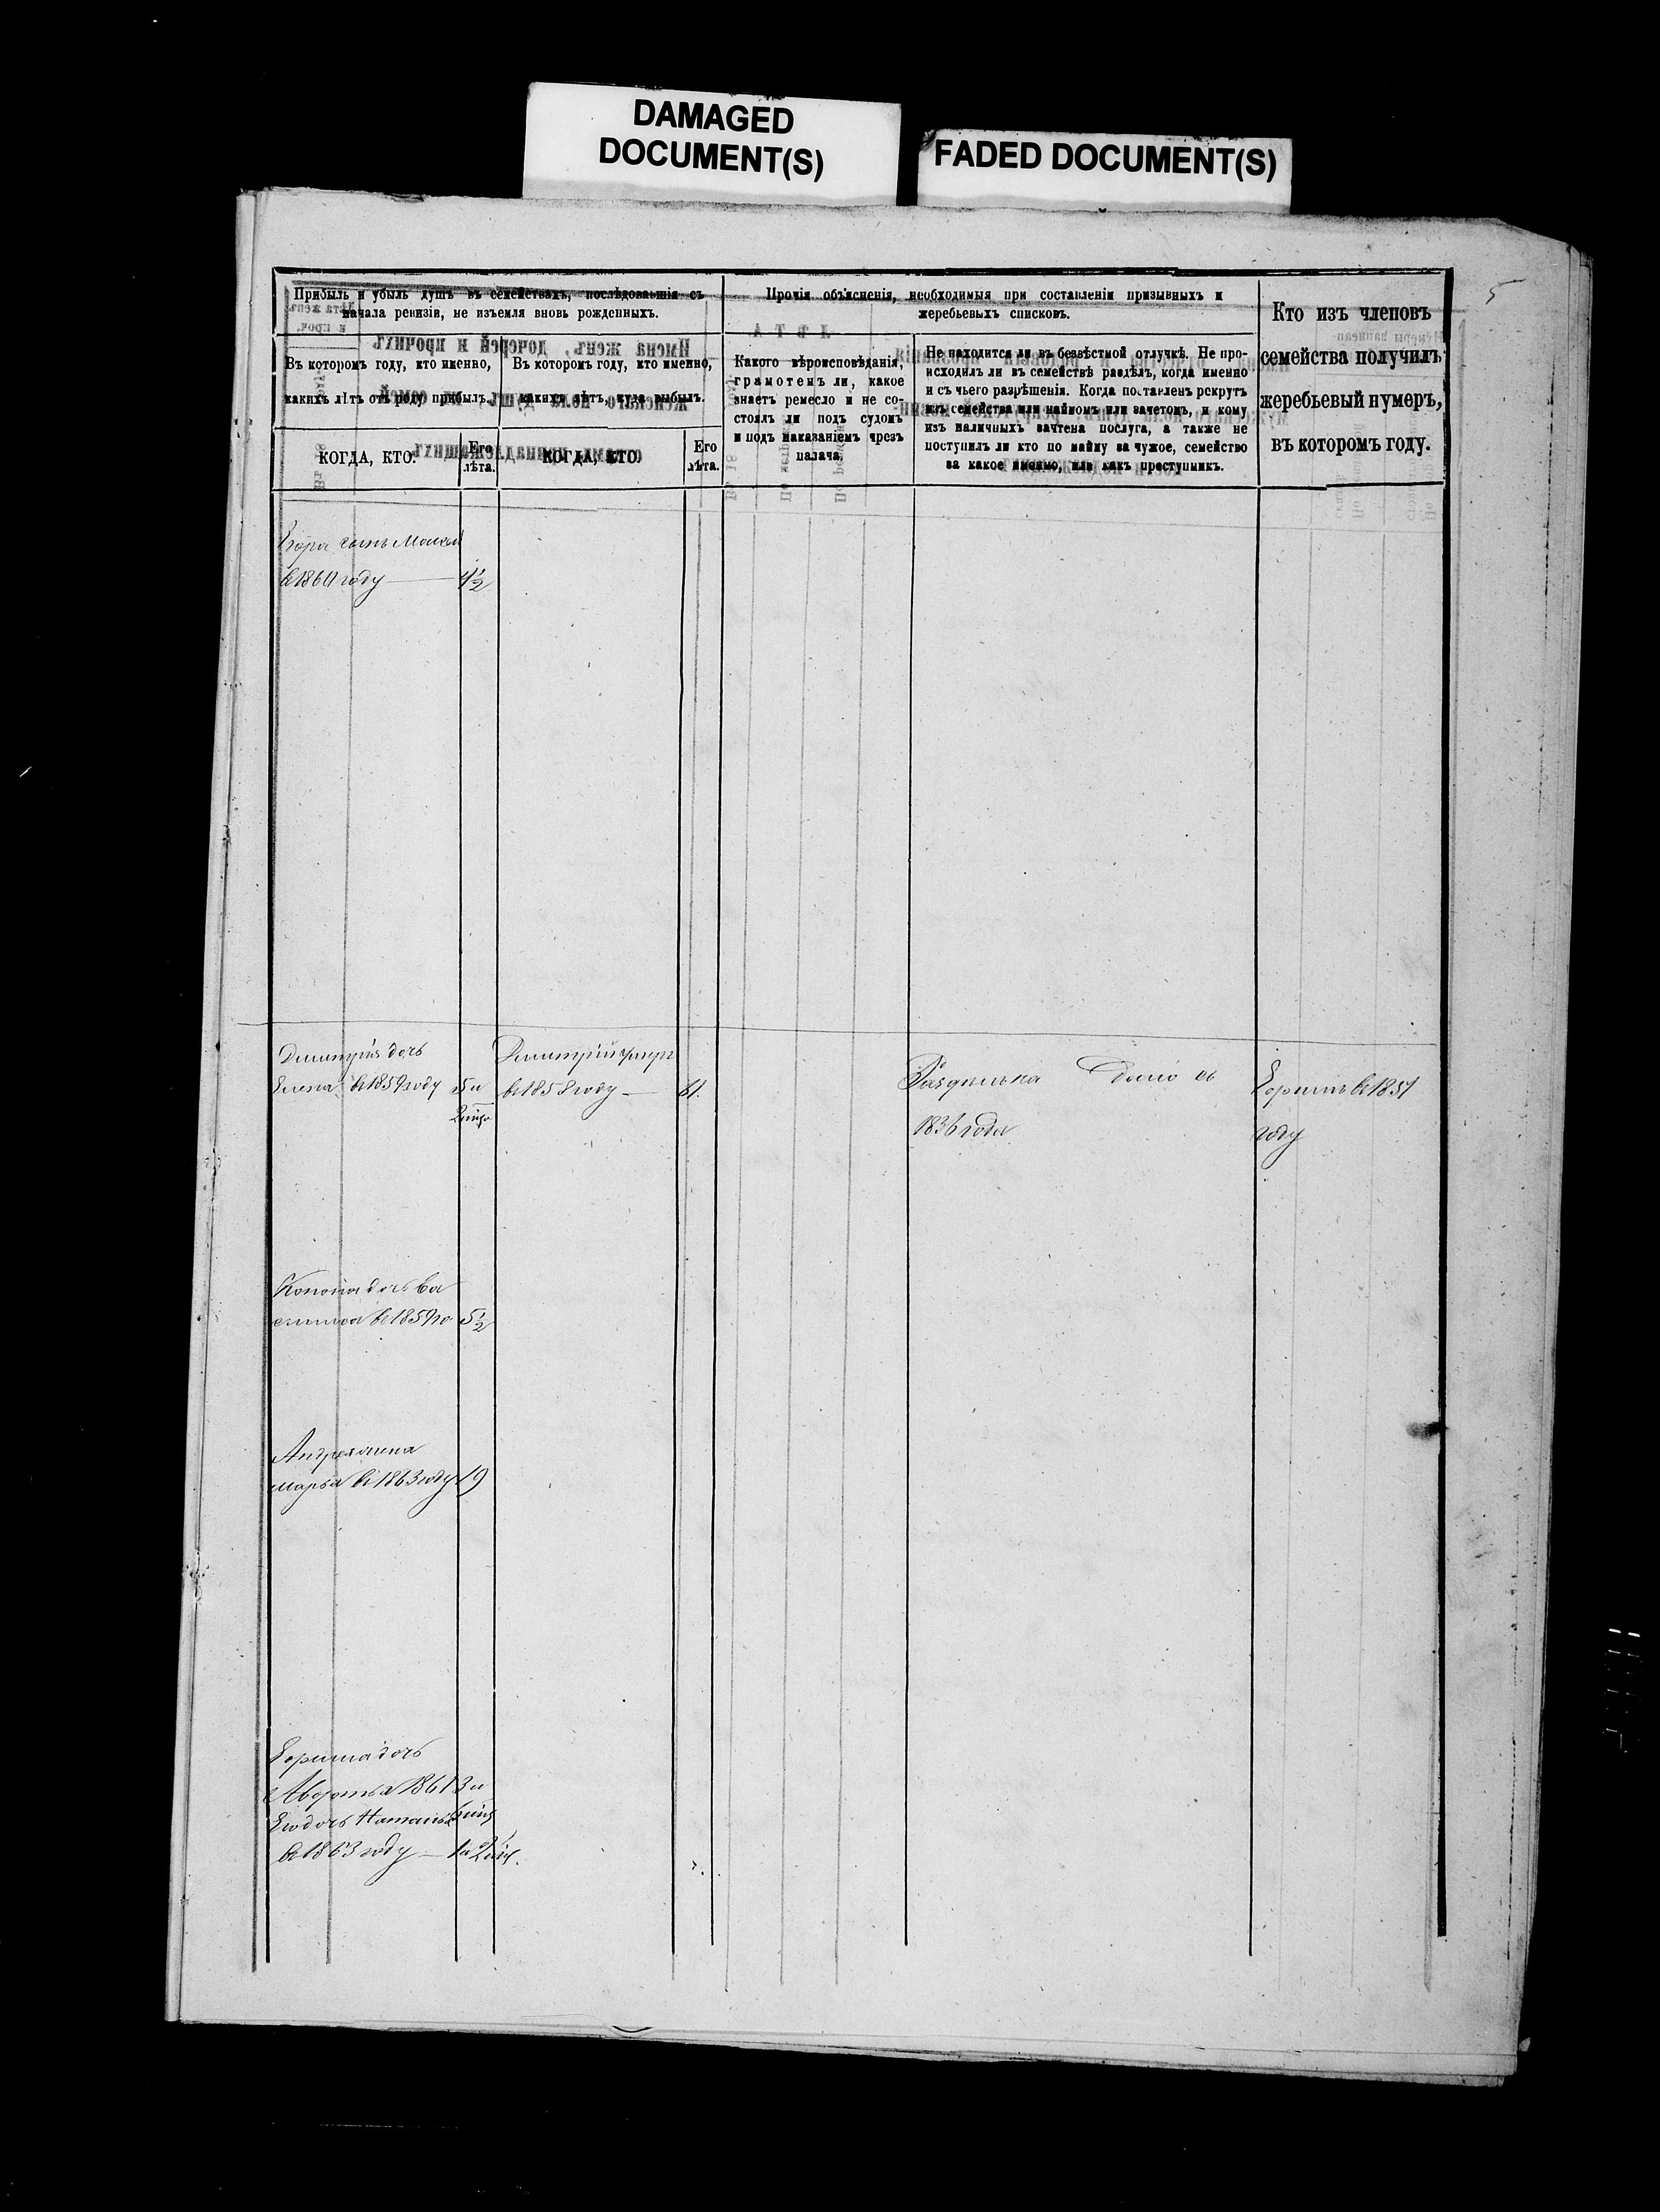 DAMAGED
DOCUMENT(S)
FADED DOCUMENT(S)
5
Прибыль и убыль душъ въ семействахъ, послѣдовавшія съ
начала ревизіи, не изъемля вновь рожденныхъ.
Въ которомъ году, кто именно,
какихъ лѣтъ отъ роду прибылъ.
Въ которомъ году, кто именно,
какихъ лѣтъ, куда выбылъ.
КОГДА, КТО.
Его
лѣта.
КОГДА, КТО.
Его
лѣта.
Прочія объясненія, необходимыя при составленіи призывныхъ и
жеребьевыхъ списковъ.
Какого вѣроисповѣданія,
грамотенъ ли, какое
знаетъ ремесло и не со-
стоялъ ли подъ судомъ
и подъ наказаніемъ чрезъ
палача.
Не находится ли въ безвѣстной отлучкѣ. Не про-
исходилъ ли въ семействѣ раздѣлъ, когда именно
и съ чьего разрѣшенія. Когда поставленъ рекрутъ
изъ семейства или наймомъ или зачетомъ, и кому
изъ наличныхъ зачтена послуга, а также не
поступилъ ли кто по найму за чужое, семейство
за какое именно, или какъ преступникъ.
Кто изъ членовъ
семейства получилъ
жеребьевый нумеръ,
въ которомъ году.
Егора сынъ
в 1860 году — 4½
Дмитрія дочь
Елена в 1859 году 5 и
Дмитрій умеръ
в 1858 году — 61.
1836 года
в 1851
году
Конона дочь Ва
силиса в 1859 го 5½
Андрея жена
марья в 1863 году 19
дочь
1861 3 и
Его дочь Наталья
в 1863 году — 1 и 2